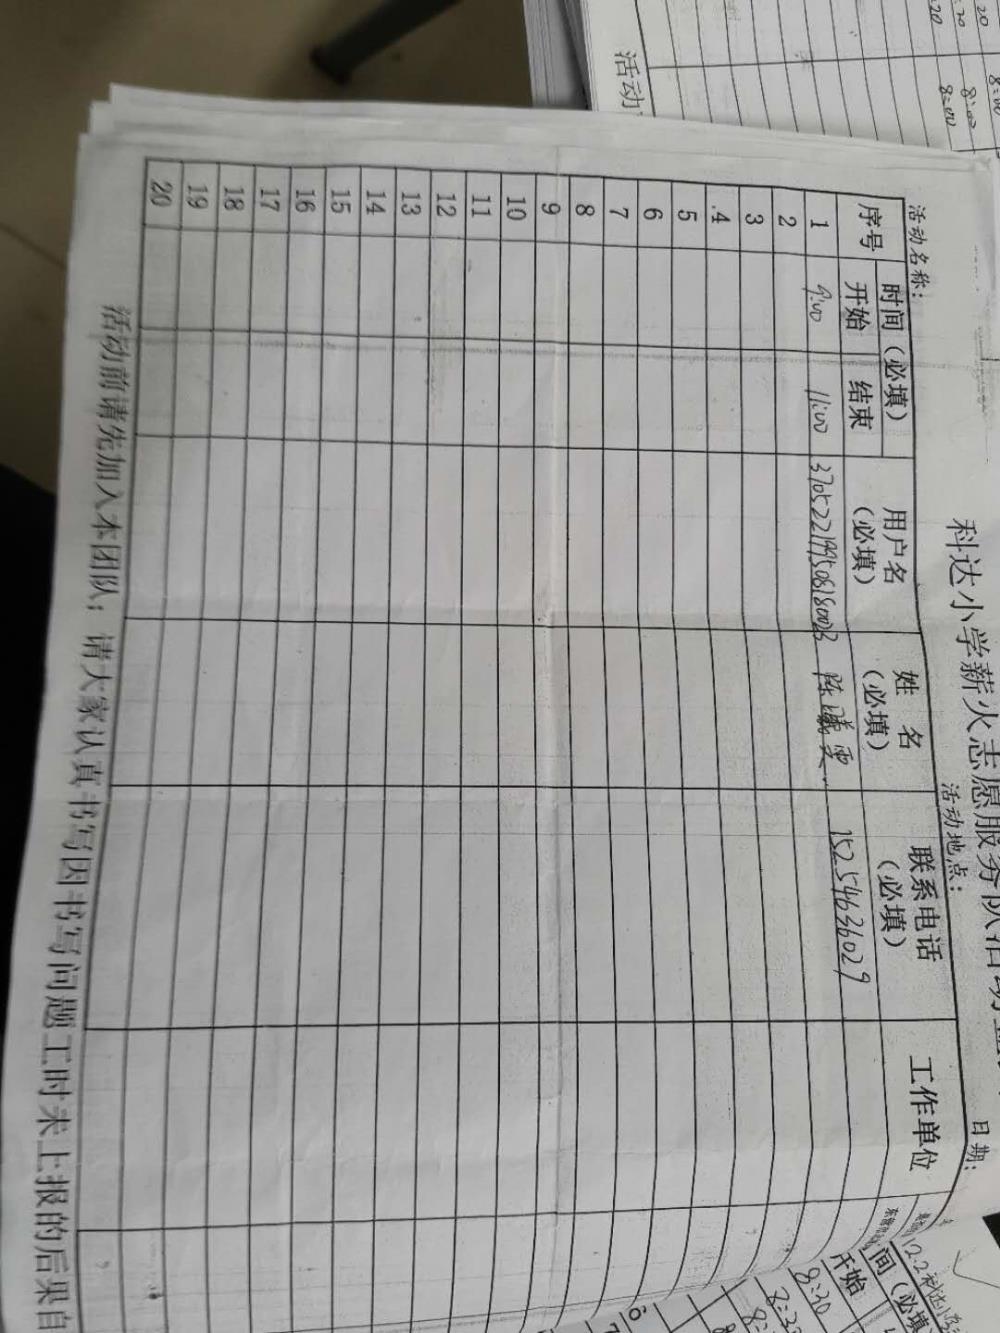 科达小学薪火志愿服务队活动
活动名称： 活动地点： 日期：
序号 时间（必填） 用户名（必填） 姓名（必填） 联系电话（必填） 工作单位
开始 结束
1 9:00 11:00 陈曦雯 15254636029
2
3
4
5
6
7
8
9
10
11
12
13
14
15
16
17
18
19
20
活动前请先加入本团队；请大家认真书写因书写问题工时未上报的后果自
活动
8:00
8:00
8:00
间（必填
开始
8:30